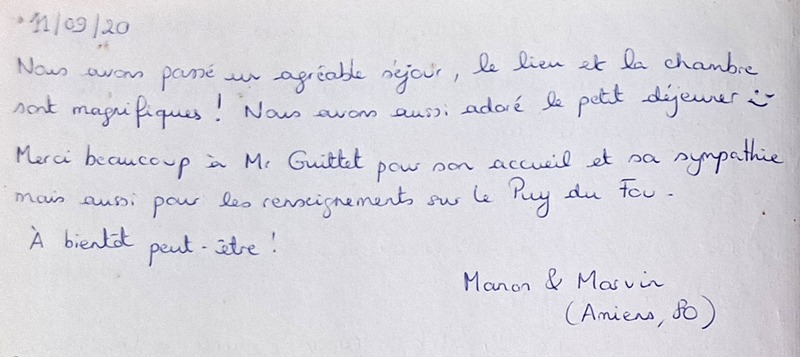 11/09/20
Nous avons passé un agréable séjour, le lieu et la chambre
sont magnifiques ! Nous avons aussi adoré le petit déjeuner :)
Merci beaucoup à Mr Guittet pour son accueil et sa sympathie
mais aussi pour les renseignements sur le Puy du Fou.
À bientôt peut-être !
Manon & Marvin
(Amiens, 80)